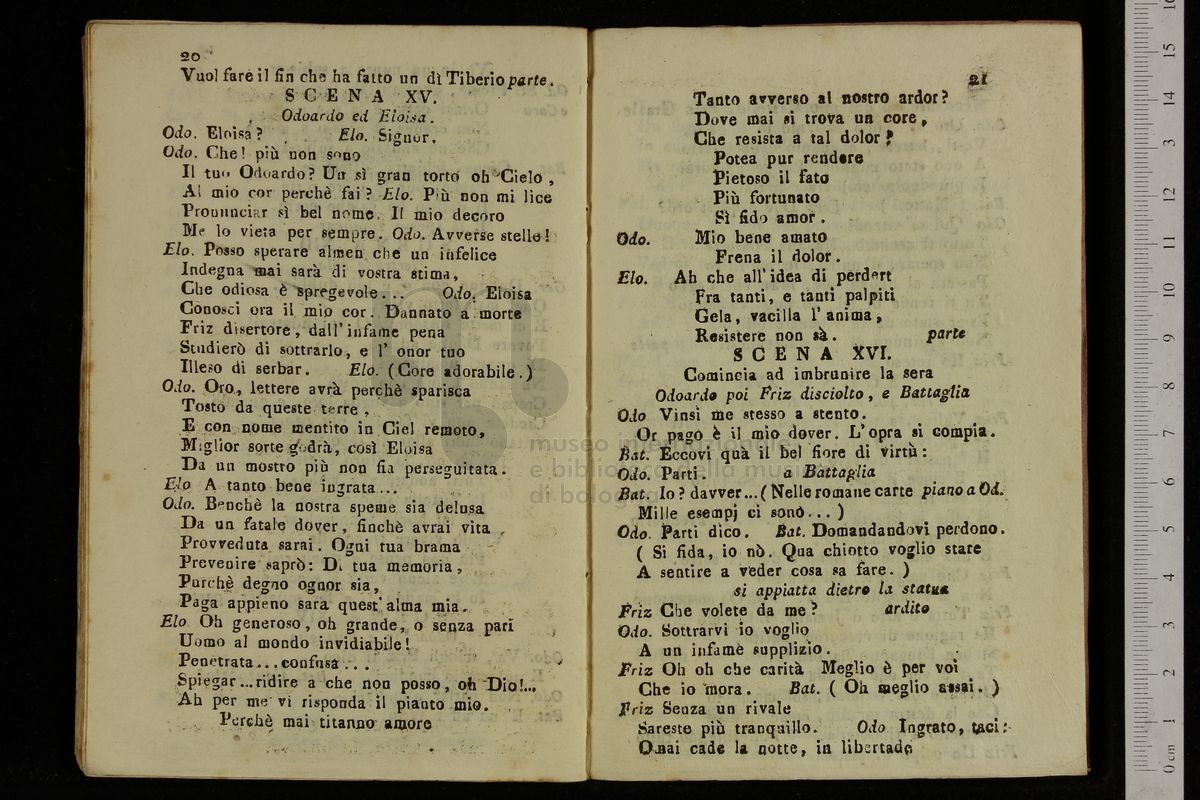 20
Vuol fare il fin che ha fatto un dì Tiberio parte.
SCENA XV.
Odoardo ed Eloisa.
Odo. Eloisa? Elo. Signor.
Odo. Che! più non sono
Il tuo Odoardo? Un sì gran torto oh Cielo,
Al mio cor perchè fai? Elo. Più non mi lice
Pronunciar sì bel nome. Il mio decoro
Me lo vieta per sempre. Odo. Avverse stelle!
Elo. Posso sperare almen che un infelice
Indegna mai sarà di vostra stima,
Che odiosa è spregevole... Odo. Eloisa
Conosci ora il mio cor. Dannato a morte
Friz disertore, dall' infame pena
Studierò di sottrarlo, e l' onor tuo
Illeso di serbar. Elo. (Core adorabile.)
Odo. Oro, lettere avrà perchè sparisca
Tosto da queste terre,
E con nome mentito in Ciel remoto,
Miglior sorte godrà, così Eloisa
Da un mostro più non fia perseguitata.
Elo A tanto bene ingrata...
Odo. Benchè la nostra speme sia delusa
Da un fatale dover, finchè avrai vita
Provveduta sarai. Ogni tua brama
Prevenire saprò: Di tua memoria,
Purchè degno ognor sia,
Paga appieno sarà quest' alma mia.
Elo Oh generoso, oh grande, o senza pari
Uomo al mondo invidiabile!
Penetrata... confusa...
Spiegar... ridire a che non posso, oh Dio!...
Ah per me vi risponda il pianto mio.
Perchè mai titanno amore
21
Tanto avverso al nostro ardor?
Dove mai si trova un core,
Che resista a tal dolor?
Potea pur rendere
Pietoso il fato
Più fortunato
Sì fido amor.
Odo. Mio bene amato
Frena il dolor.
Elo. Ah che all' idea di perdert
Fra tanti, e tanti palpiti
Gela, vacilla l' anima,
Resistere non sà. parte
SCENA XVI.
Comincia ad imbrunire la sera
Odoardo poi Friz disciolto, e Battaglia
Odo Vinsi me stesso a stento.
Or pago è il mio dover. L' opra si compia.
Bat. Eccovi quà il bel fiore di virtù:
Odo. Parti. a Battaglia
Bat. Io? davver... (Nelle romane carte piano a Od.
Mille esempj ci sonò...)
Odo. Parti dico. Bat. Domandandovi perdono.
( Si fida, io nò. Qua chiotto voglio stare
A sentire a veder cosa sa fare. )
si appiatta dietro la statua
Friz Che volete da me? ardito
Odo. Sottrarvi io voglio
A un infame supplizio.
Friz Oh oh che carità Meglio è per voi
Che io mora. Bat. ( Oh meglio assai. )
Friz Senza un rivale
Sareste più tranquillo. Odo Ingrato, taci:
Omai cade la notte, in libertade
museo internazionale
e biblioteca della musica
di bologna